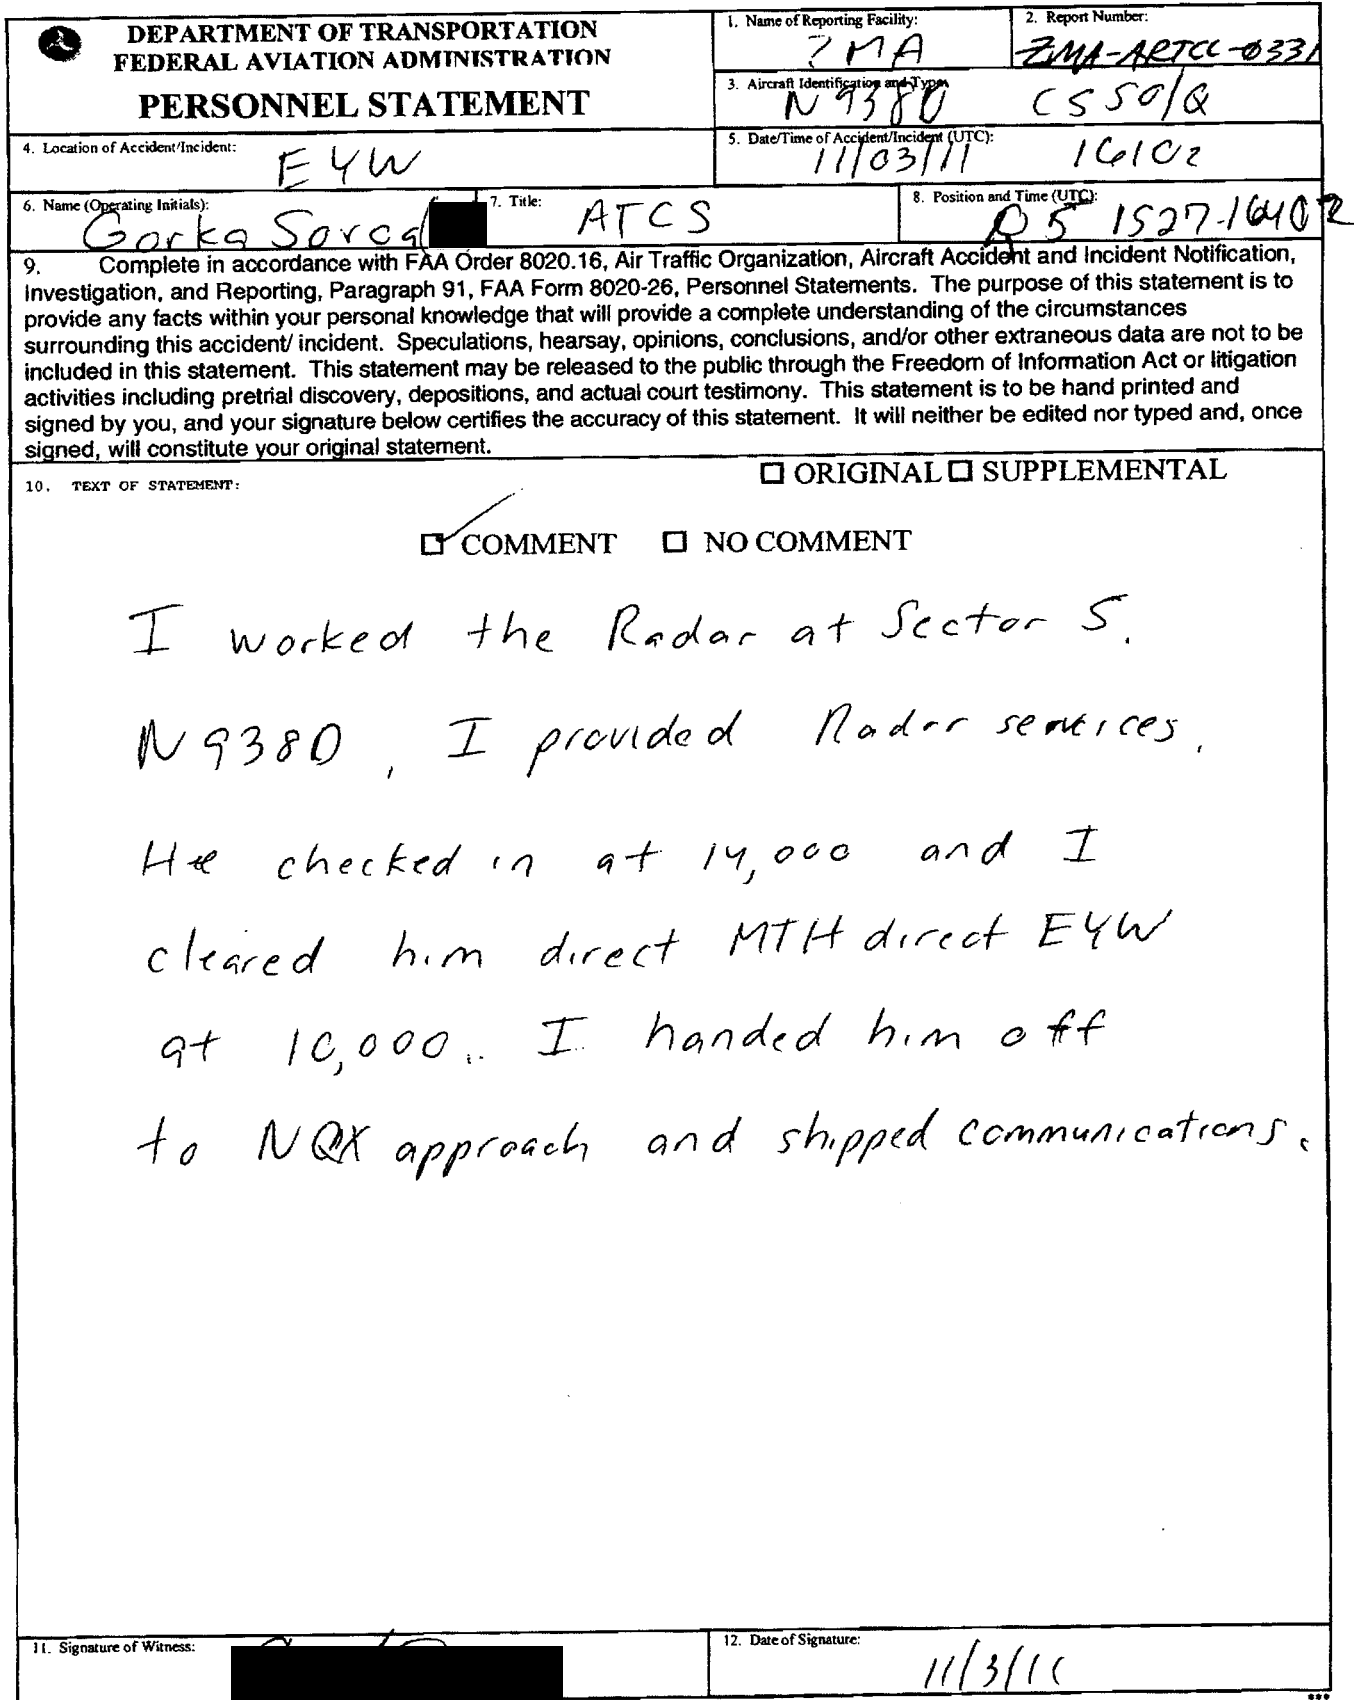 DEPARTMENT OF TRANSPORTATION
FEDERAL AVIATION ADMINISTRATION
PERSONNEL STATEMENT
1. Name of Reporting Facility:
ZMA
2. Report Number:
ZMA-ARTCC-0331
3. Aircraft Identification and Type:
N938D C550/Q
4. Location of Accident/Incident:
EYW
5. Date/Time of Accident/Incident (UTC):
11/03/11 1610z
6. Name (Operating Initials):
Gorka
7. Title:
ATCS
8. Position and Time (UTC):
R5 1527-1640z
9. Complete in accordance with FAA Order 8020.16, Air Traffic Organization, Aircraft Accident and Incident Notification,
Investigation, and Reporting, Paragraph 91, FAA Form 8020-26, Personnel Statements. The purpose of this statement is to
provide any facts within your personal knowledge that will provide a complete understanding of the circumstances
surrounding this accident/ incident. Speculations, hearsay, opinions, conclusions, and/or other extraneous data are not to be
included in this statement. This statement may be released to the public through the Freedom of Information Act or litigation
activities including pretrial discovery, depositions, and actual court testimony. This statement is to be hand printed and
signed by you, and your signature below certifies the accuracy of this statement. It will neither be edited nor typed and, once
signed, will constitute your original statement.
10. TEXT OF STATEMENT:
ORIGINAL SUPPLEMENTAL
COMMENT NO COMMENT
I worked the Radar at Sector 5.
N938D, I provided Radar services.
He checked in at 14,000 and I
cleared him direct MTH direct EYW
at 10,000. I handed him off
to NQX approach and shipped communications.
11. Signature of Witness:
12. Date of Signature:
11/3/11